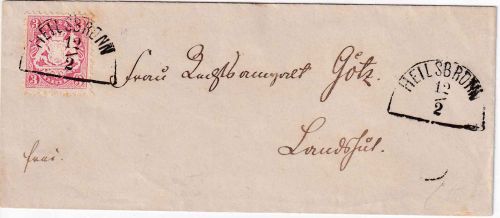 HEILSBRONN
12
2
3 3
Frau Rechtsanwalt Götz.
HEILSBRONN
12
2
Landshut.
frei.